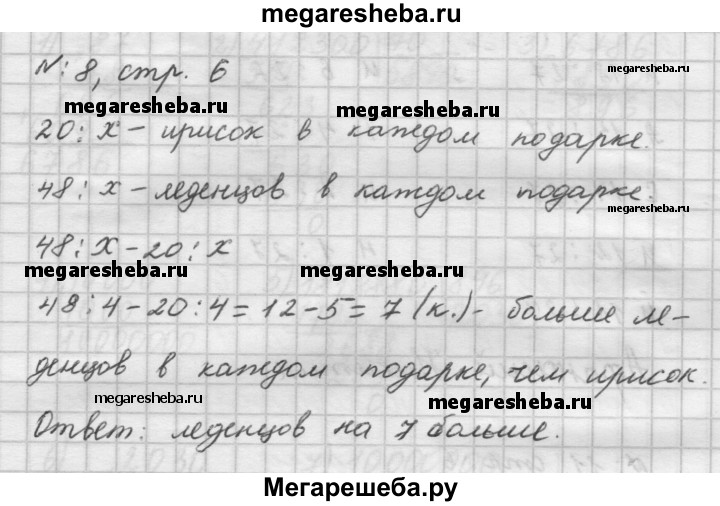 megaresheba.ru
№: 8, стр. 6
megaresheba.ru
megaresheba.ru
megaresheba.ru
20: x – ирисок в каждом подарке.
48: x – леденцов в каждом подарке.
megaresheba.ru
48: x – 20: x
megaresheba.ru
megaresheba.ru
48:4 – 20:4 = 12 – 5 = 7 (к.) - больше ле-
денцов в каждом подарке, чем ирисок.
megaresheba.ru
megaresheba.ru
Ответ: леденцов на 7 больше.
Мегарешеба.ру